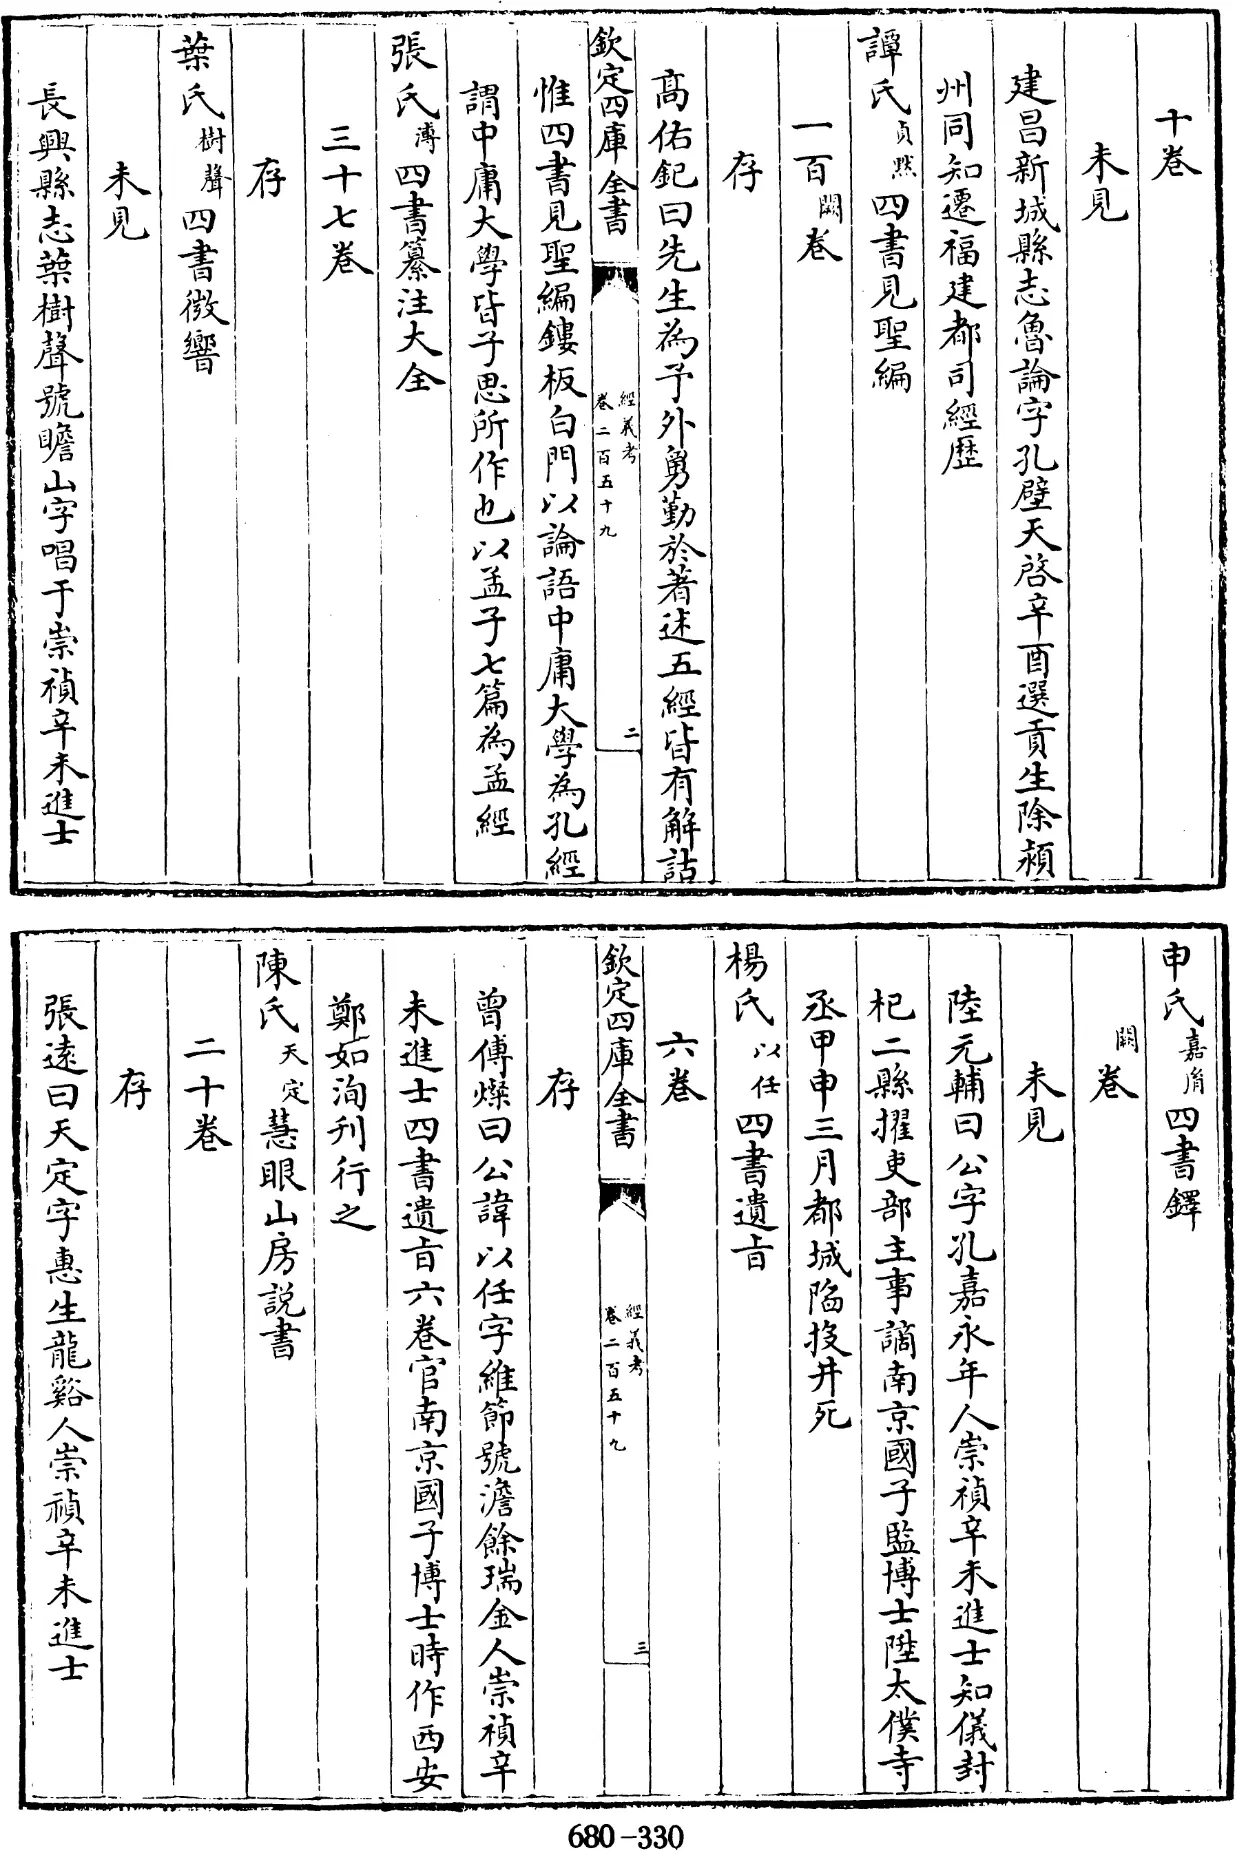 十卷
未見
建昌新城縣志魯論字孔壁天啓辛酉選貢生除潁
州同知遷福建都司經歷
譚氏貞黙四書見聖編
一百闕卷
存
高佑釲曰先生為予外舅勤於著述五經皆有解詁
欽定四庫全書 經義考 卷二百五十九 二
惟四書見聖編鏤板白門以論語中庸大學為孔經
謂中庸大學皆子思所作也以孟子七篇為孟經
張氏溥四書纂注大全
三十七卷
存
葉氏樹聲四書微響
未見
長興縣志葉樹聲號瞻山字唱于崇禎辛未進士
申氏嘉胤四書鐸
闕卷
未見
陸元輔曰公字孔嘉永年人崇禎辛未進士知儀封
杞二縣擢吏部主事謫南京國子監博士陞太僕寺
丞甲申三月都城陷投井死
楊氏以任四書遺旨
六卷
存
欽定四庫全書 經義考 卷二百五十九 三
曾傅燦曰公諱以任字維節號澹餘瑞金人崇禎辛
未進士四書遺旨六卷官南京國子博士時作西安
鄭如洵刊行之
陳氏天定慧眼山房說書
二十卷
存
張遠曰天定字惠生龍谿人崇禎辛未進士
680-330